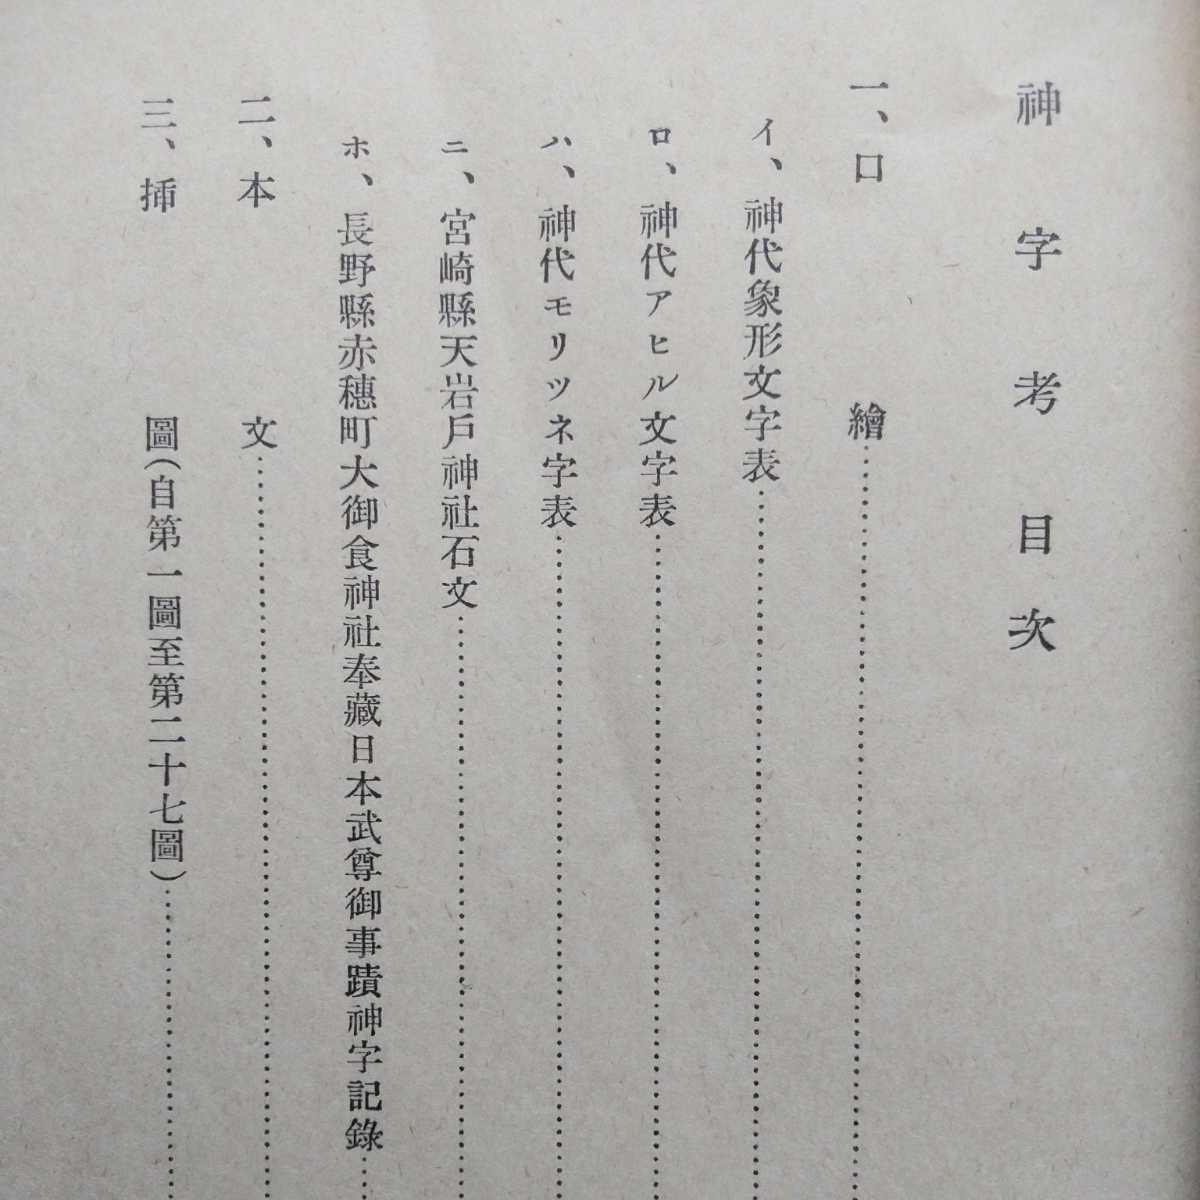 神字考目次
一、口繪
イ、神代象形文字表
ロ、神代アヒル文字表
ハ、神代モリツネ字表
ニ、宮崎縣天岩戶神社石文
ホ、長野縣赤穗町大御食神社奉藏日本武尊御事蹟神字記錄
二、本文
三、挿圖(自第一圖至第二十七圖)